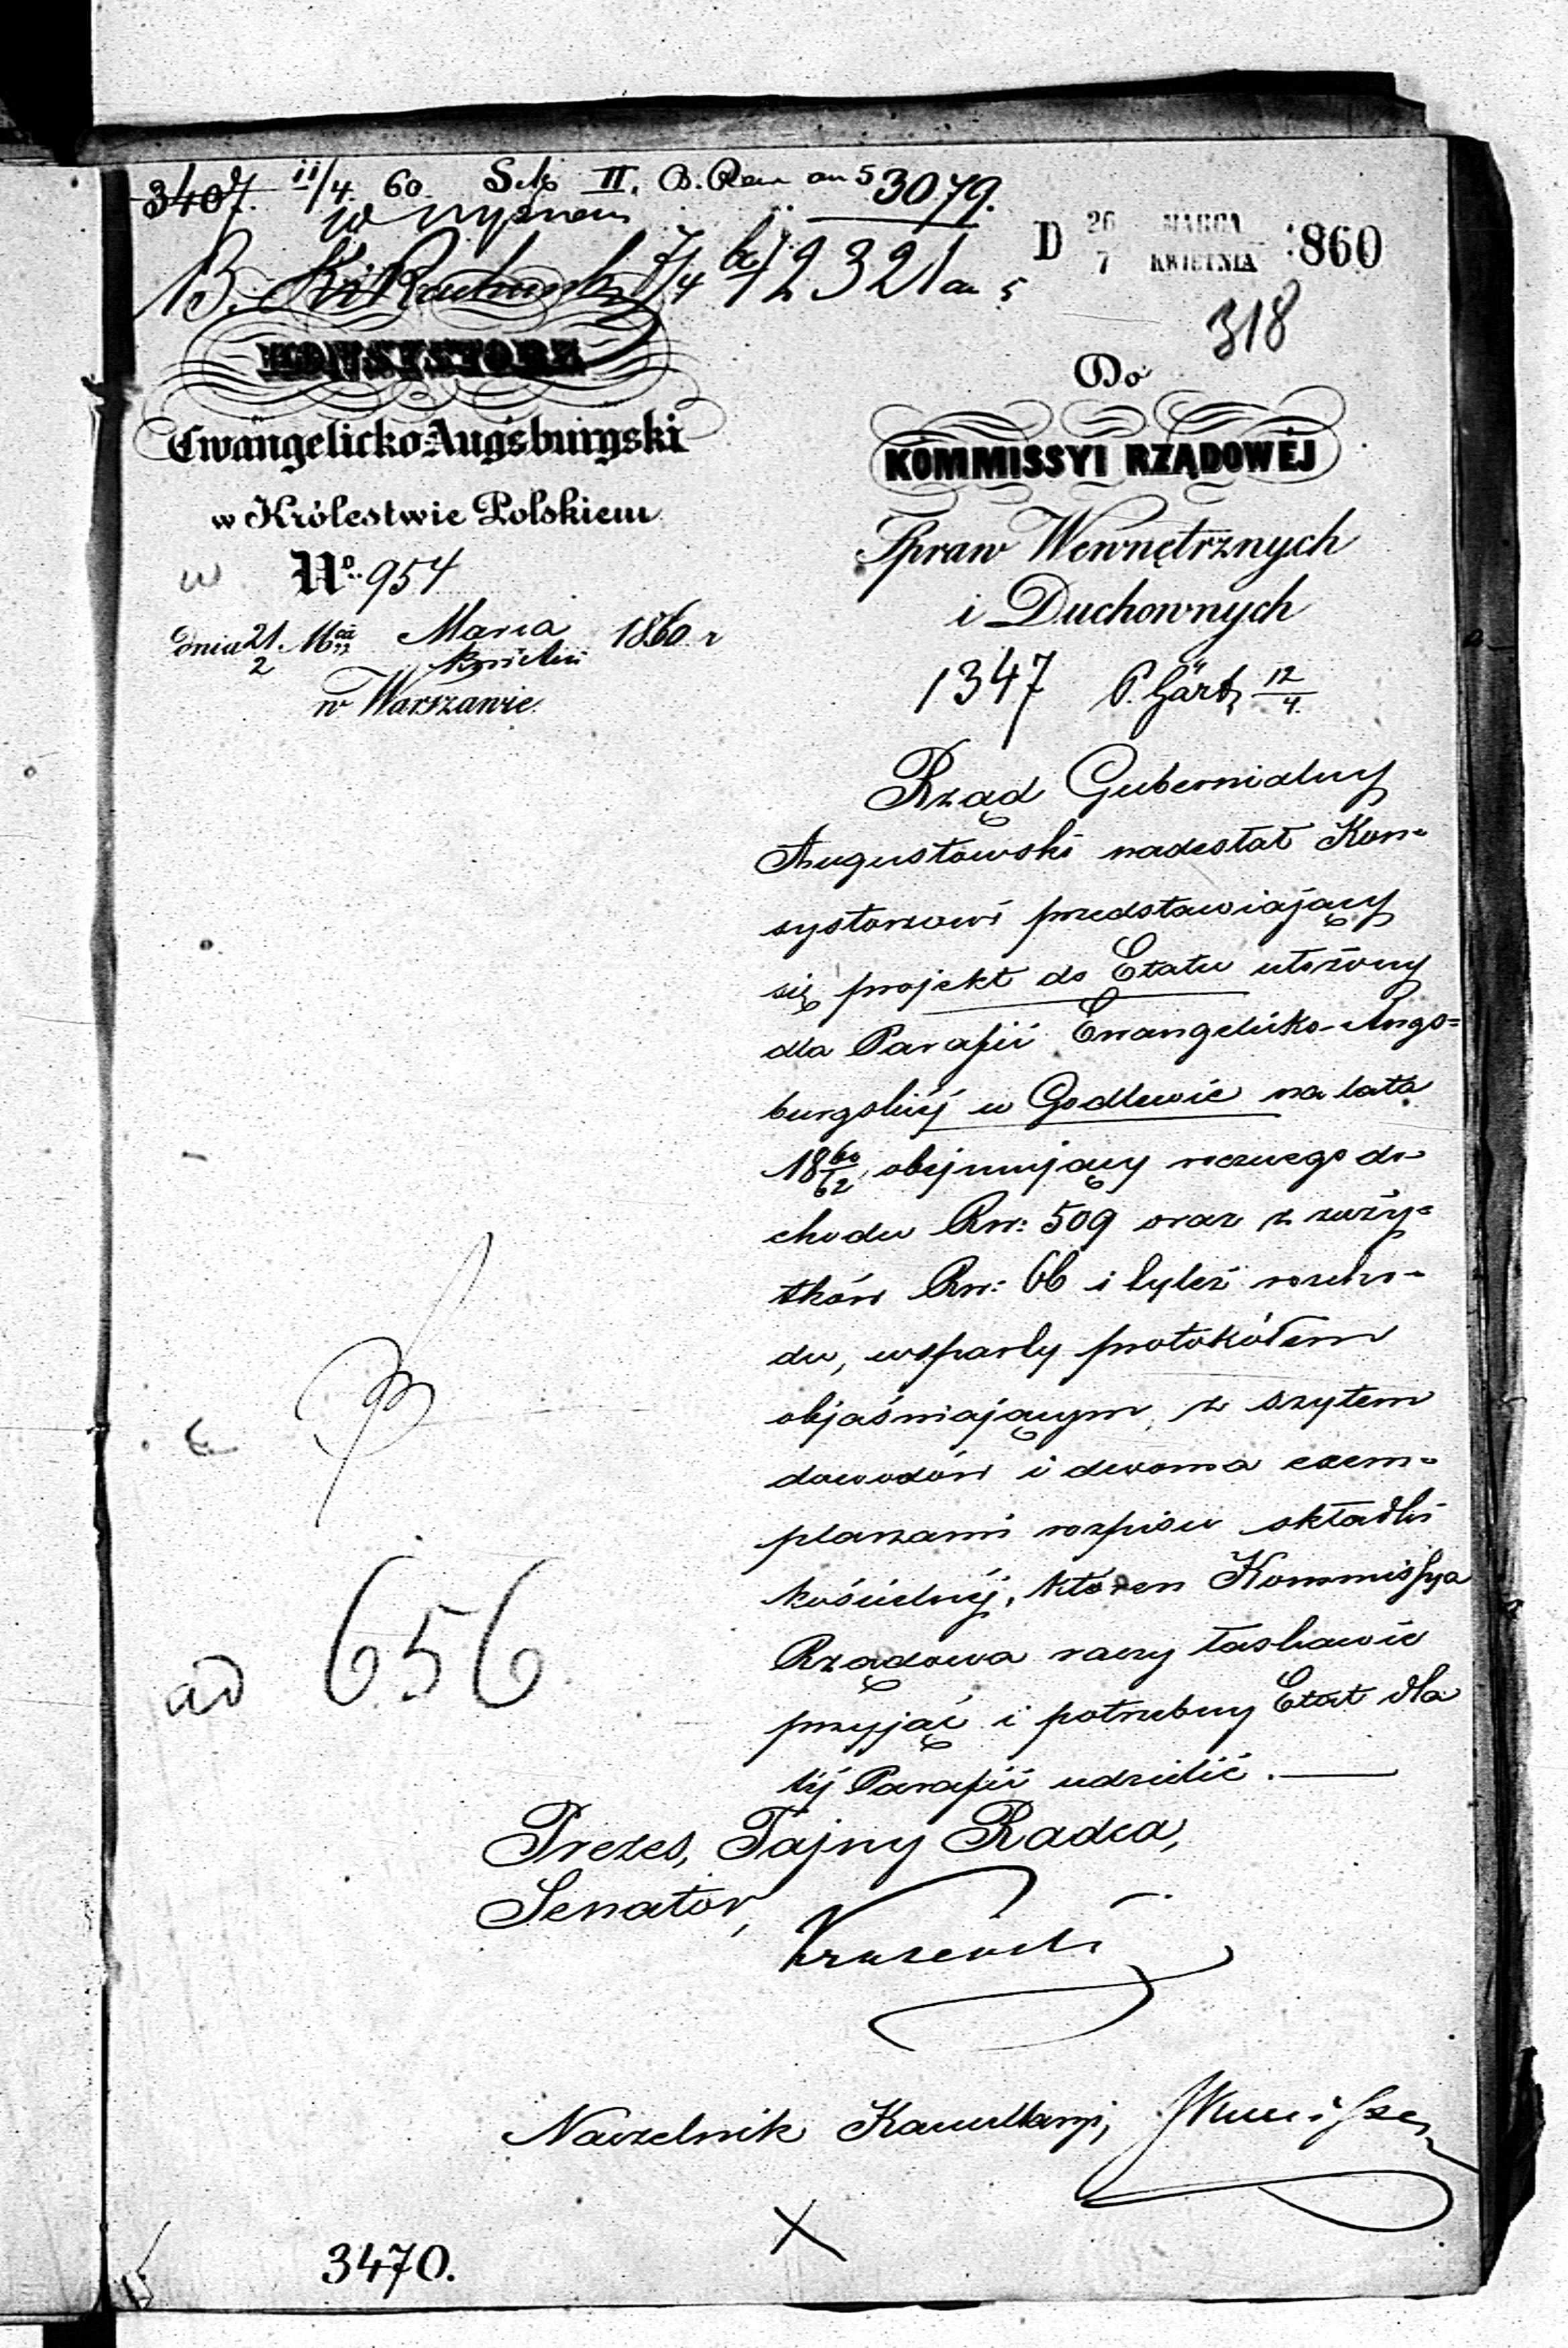 3407. 11/4 60 II. 3079.
B. 7/4 12321 5
D 26 MARCA 7 KWIETNIA 1860
318
KONSYSTORZ
Ewangelicko-Augsburgski
w Królestwie Polskiem
w No. 954
dnia 21/2 Marca/Kwietnia 1860 r
w Warszawie.
Do
KOMMISSYI RZĄDOWÉJ
Spraw Wewnętrznych
i Duchownych
1347 P. Gärt 12/4.
Rząd Gubernialny
Augustowski nadesłał Kon=
systorzowi przedstawiający
się projekt do Etatu ułożony
dla Parafii Ewangelicko-Augs=
burgskiéj w Godlewie na lata
18 60/62, obejmujący rocznego do-
chodu Rsr: 509 oraz z zuży=
tków Rsr: 66 i tyleż rozcho-
du, wsparty protokółem
objaśniającym, z szytem
dowodów i dwoma exem=
plarzami rozpisu składki
kościelnéj, któren Kommissya
Rządowa raczy łaskawie
przyjąć i potrzebny Etat dla
téj Parafii udzielić.
ad 656
Prezes, Tajny Radca,
Senator,
Naczelnik Kancellaryi,
3470.